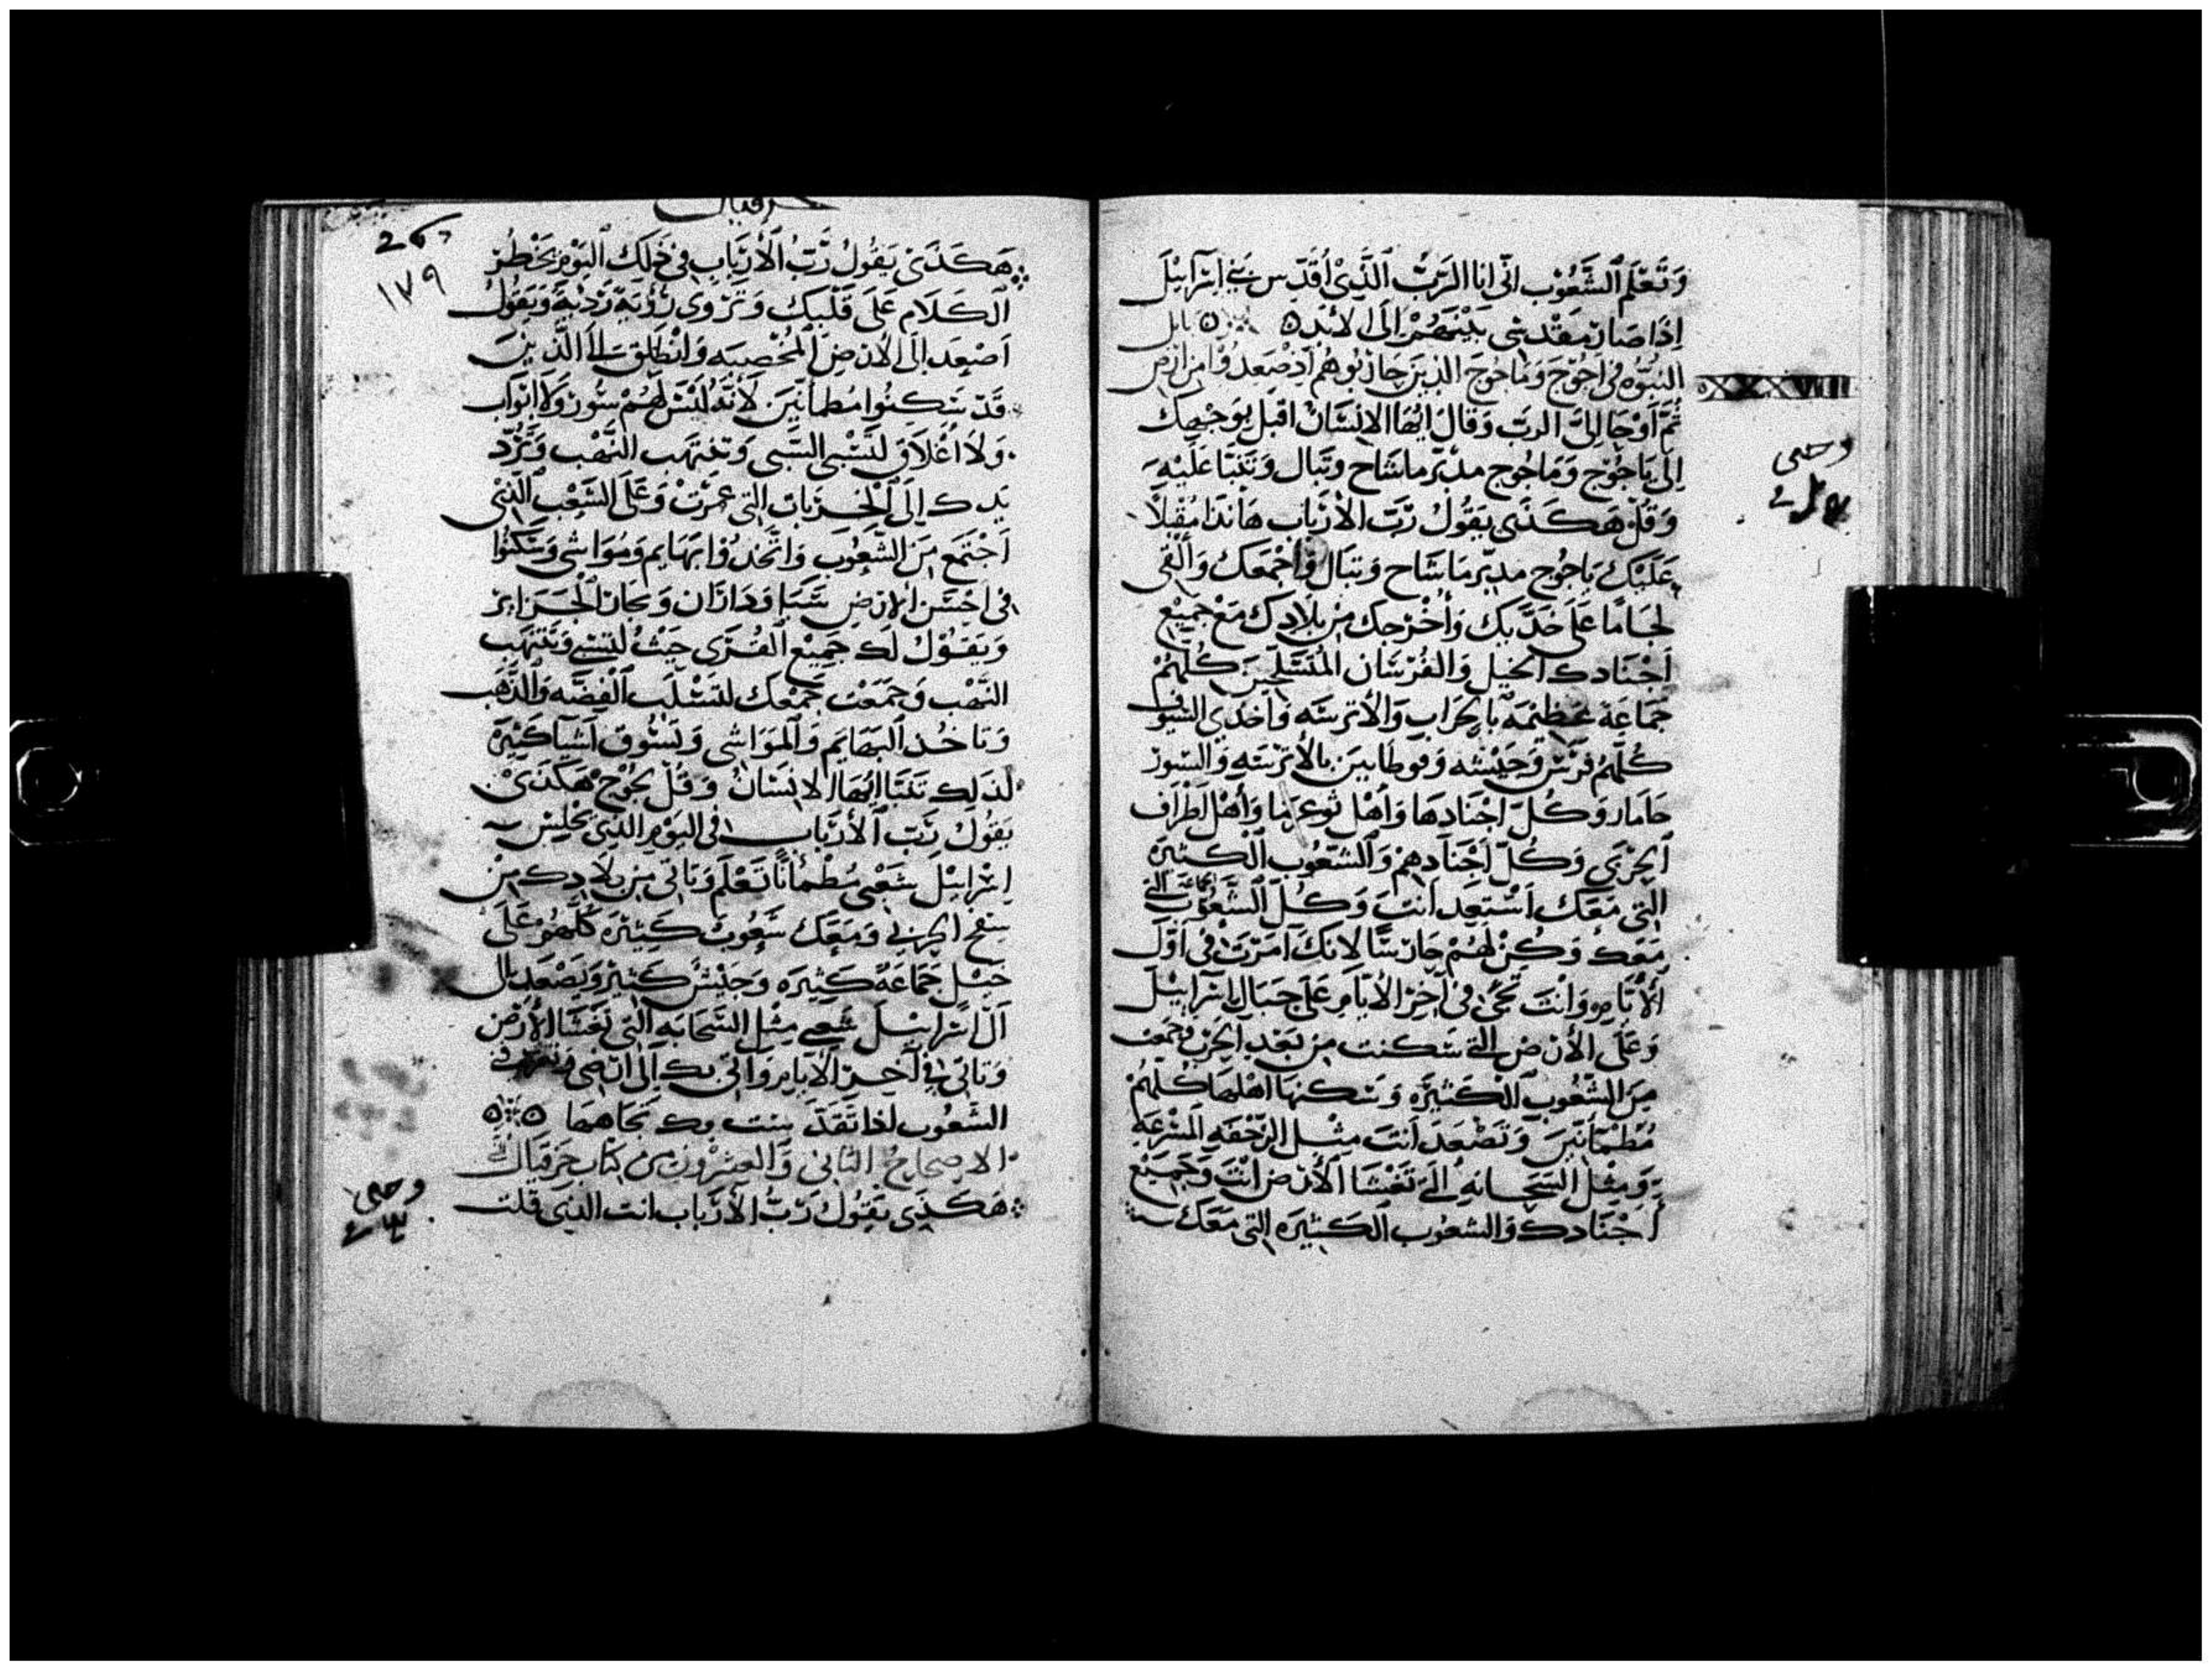 وَتَعْلَم الشَّعُوْب انّى انا الرَبّ الَّذِىْ اُقَدّس بَنِى اِسْرَآئِيْلَ
اِذَا صَارَ مَقْدسِى بَيْنَهُمْ اِلَى الابَد
النبُوّه فِى اجُوْجَ وَمَاجُوجَ الذِينَ حَاربُوهُم اِذ صَعِدُوْا مِن ارْض
XXXVIII
ثُمَّ اَوْحَا اِلىَّ الربّ وَقالَ ايُّهَا الاِنْسَانْ اقبَل بِوَجْهِكَ
اِلَى يَاجُوْج وَمَاجُوج مدبّر ماشَاح وتَبَال وَتَنَبّا عَلَيْهِ
وَقُلْ هَكَذَى يَقُوْلُ رَّبّ الأرْبَاب هَانَذَا مُقْبِلاً
عَلَيْكَ يَاجُوج مدبّر مَاشَاح وَتبَال وَاجْمَعَك وَالْقِى
لجَامًا عَلَى خَدَّيكَ وَأُخْرْجكَ مِن بِلَادِكَ مَعَ جَمِيْع
اَجْنَادك الخيل وَالفُرْسَان المُتَسَلّحِينَ كُلّهُمْ
جَمَاعَة عَظِيْمَه بالحِرَاب وَالأَترسَه وَاخدِي السّيُوف
كُلّهُمُ فرَسْ وَحَبَشَه وَفوطَا بين بالأَتْرسَتهِ وَالسّوز
حَامَار وَكُلّ اجْنَادِهَا وَأهْل تُوعرَما وَأهْل اَطْرَاف
اَلجِرْبَى وَكُلّ اَجْنَادِهِمْ وَالشّعُوب الكَثِيْرَة
التِى مَعَك اَسْتَعِد اَنتَ وَكُلّ اَلشَّعُوْب التى
مَعَكَ وَكُنْ لَهُمْ حَارسًا لانكَ اَمَرْتَ فِى اَوَّل
الأيَّام وَانْتَ تَجِئ فِى آخِرْ الأيّام عَلَى جبَال اِسْرَآئِيْلَ
وَعَلَى الأَرْض التى سَكنت مِن بَعْدِ الحَرْب وَجمعَت
مِنَ الشّعُوب الكَثِيْرَه وَسَكَنهَا اهْلهَا كُلّهُمْ
مُطْمَأنّينَ وَتَصْعَدَ اَنتَ مِثْل الزّحْفَهِ المسْرعَهِ
وَمِثْل السَحَابَهِ التى تَغْشَا الأَرْض انْتَ وَجَمِيْع
اَجْنَادك وَالشعُوب الكَثِيْرَه التِى مَعَكَ
وحى
حزقيال
١٧٩
هَكَذَى يَقُولُ رَّبّ الأَرْبَاب فى ذَلِكَ اليَوْم يَخْطُرْ
الكَلَام عَلَى قَلْبك وَتَرْوى رُؤْيَة رَدْيَة وَيَقُولُ
اَصْعَد اِلَى الأرْض المُخْصِبَه وَانْطَلق اِلَى الَّذِينَ
قَدْ سَكنُوا مُطْمَأنّينَ لأَنَّهُ لَيْسَ لَهُمْ سُورْ وَلاَ ابْوَاب
وَلاَ اغْلَاق لتَسْبِى السَّبى وَتنتهَب النَّهْب وَتَرُدّ
يَدِك اِلَى الْخِرَبَات التِى عمرَتْ وَعَلَى الشَعْب الَّذِى
اَجْتَمَع مِنَ الشّعُوب وَاتّخذُوا بَهَايم وَمُوَاشى وَسَكنُوْا
فِى احْسَن الأرْض سَبَا وَدَادَان وَتجَار الْجَزَايرْ
وَيقُوْلُ لَك جَمِيْع القُرَى جيْت لتسْبى وَتنْتهَب
النَّهْب وَجَمَعْت جَمْعَك لتَسْلبَ الْفِضَّه وَالذَّهَب
وَتاخُذ البَهَايم وَالمَوَاشى وَتسُوق اَشْيَا كَثِيْرَة
لذَلِكَ تَنَبّا ايُّهَا الانْسَانُ وَقُلْ لجُوْج هَكَذَىْ
يَقُوْلُ رَبّ الأرْبَاب فِى اليَوْم الذى يجْلِسْ
اِسْرَائِيْلَ شَعْبِى مُطْمَأنًا تَعْلَم وَتَاتى مِن بلَادك مِنْ
سفح الجربى وَمَعَكَ شَعُوبْ كَثِيْرَه كُلّهُمْ عَلَى
خَيْل جَمَاعَة كَثِيْرَه وَجَيْشْ كَثِيْر وَتَصْعَد الى
آل اِسْرَائِيْلَ شَعبى مِثْل السَّحَابَه التِى تَغْشَا الأرْض
وَتَاتى فى آخِر الأَيَّام وَآتى بك اِلَى ارْضى
الشعُوب اِذَا تَقَدّسْت بك تجَاههَا
الاصحاح الثانى وَالعشْرُون من كتاب حزقيال
هَكَذِى يَقُوْلُ رَبُّ الأَرْبَاب انت الذِى قلت
وحى